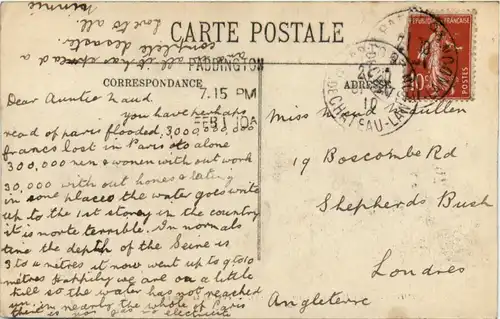 CARTE POSTALE
CORRESPONDANCE
ADRESSE
PADDINGTON
7.15 PM
FEB 1 10A
REPUBLIQUE FRANÇAISE
10c
Dear Auntie Maud.
You have perhaps
read of paris flooded. 3,000,000,000
francs lost in Paris alone
300,000 men & women with out work
30,000 with out homes &
in some places the water goes write
up to the 1st storey in the country
it is more terrible. In normals
time the depth of the Seine is
3 to 4 mètres it now went up to 9 to 10
mètres Happily we are on a little
hill so the water has not reached
us in nearly the whole of Paris
there is no gas no electricity
and it all has apread a
complete desastr
Love to all.
Miss Maud Pullen
19 Boscombe Rd
Shepherds Bush
Londres
Angleterre